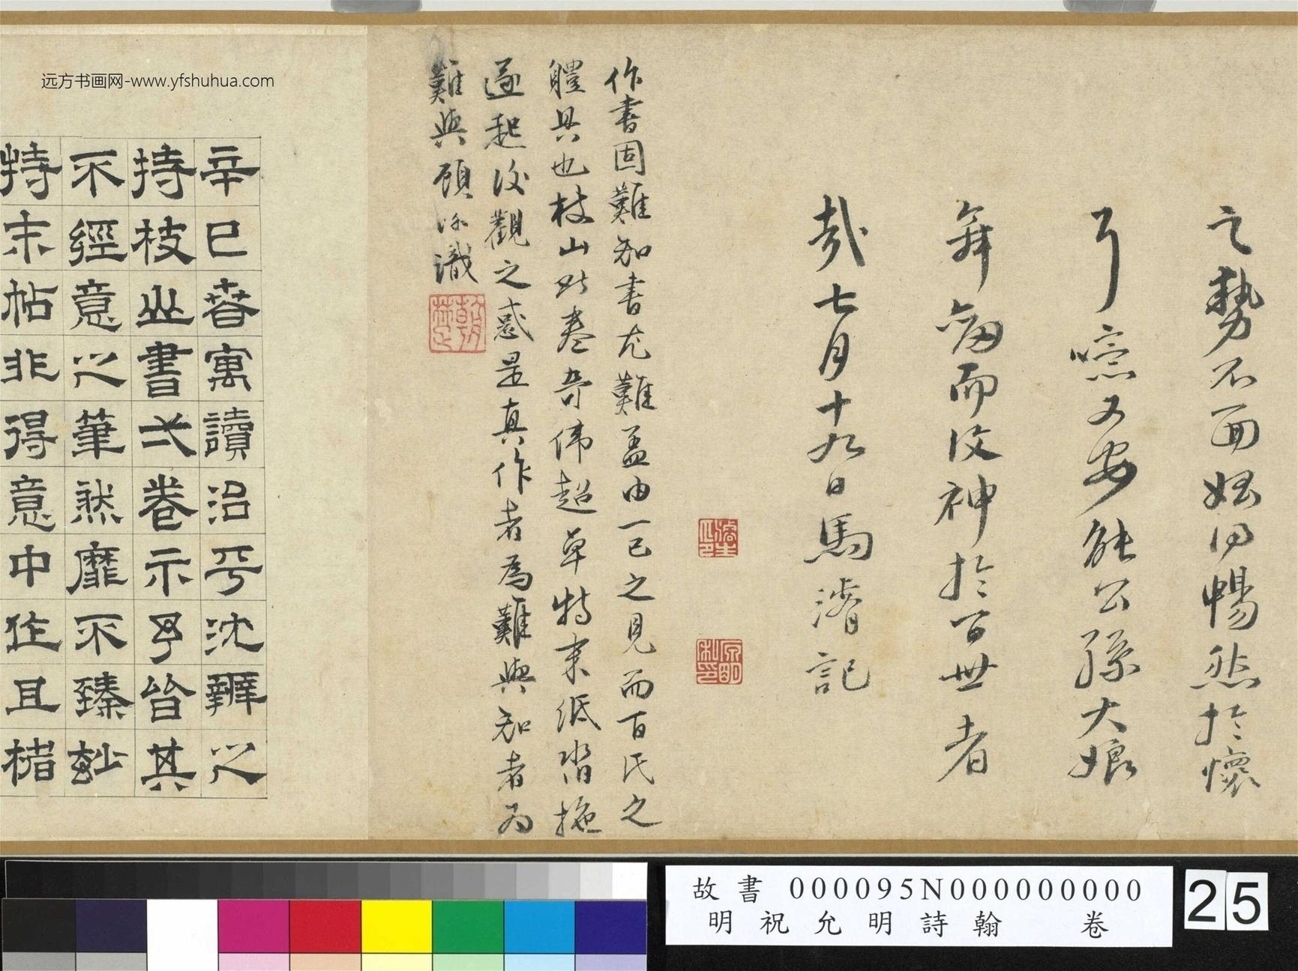 之勢不面媱何暢然於懷
耳噫又安能公孫大娘
舞劒而役神於百世者
哉七月十九日馬濟記
作書固難知書尤難蓋由一己之見而百氏之
體具也枝山此卷奇偉超卓特末紙沓拖
遂起後觀之惑是真作者為難與知者為
難與顧 識
辛巳春寓讀沿平沈辨之
持枝山書弍卷示予皆其
不經意之筆然靡不臻妙
特末帖非得意中作且楮
远方书画网-www.yfshuhua.com
故書 000095N000000000
明祝允明詩翰 卷
25